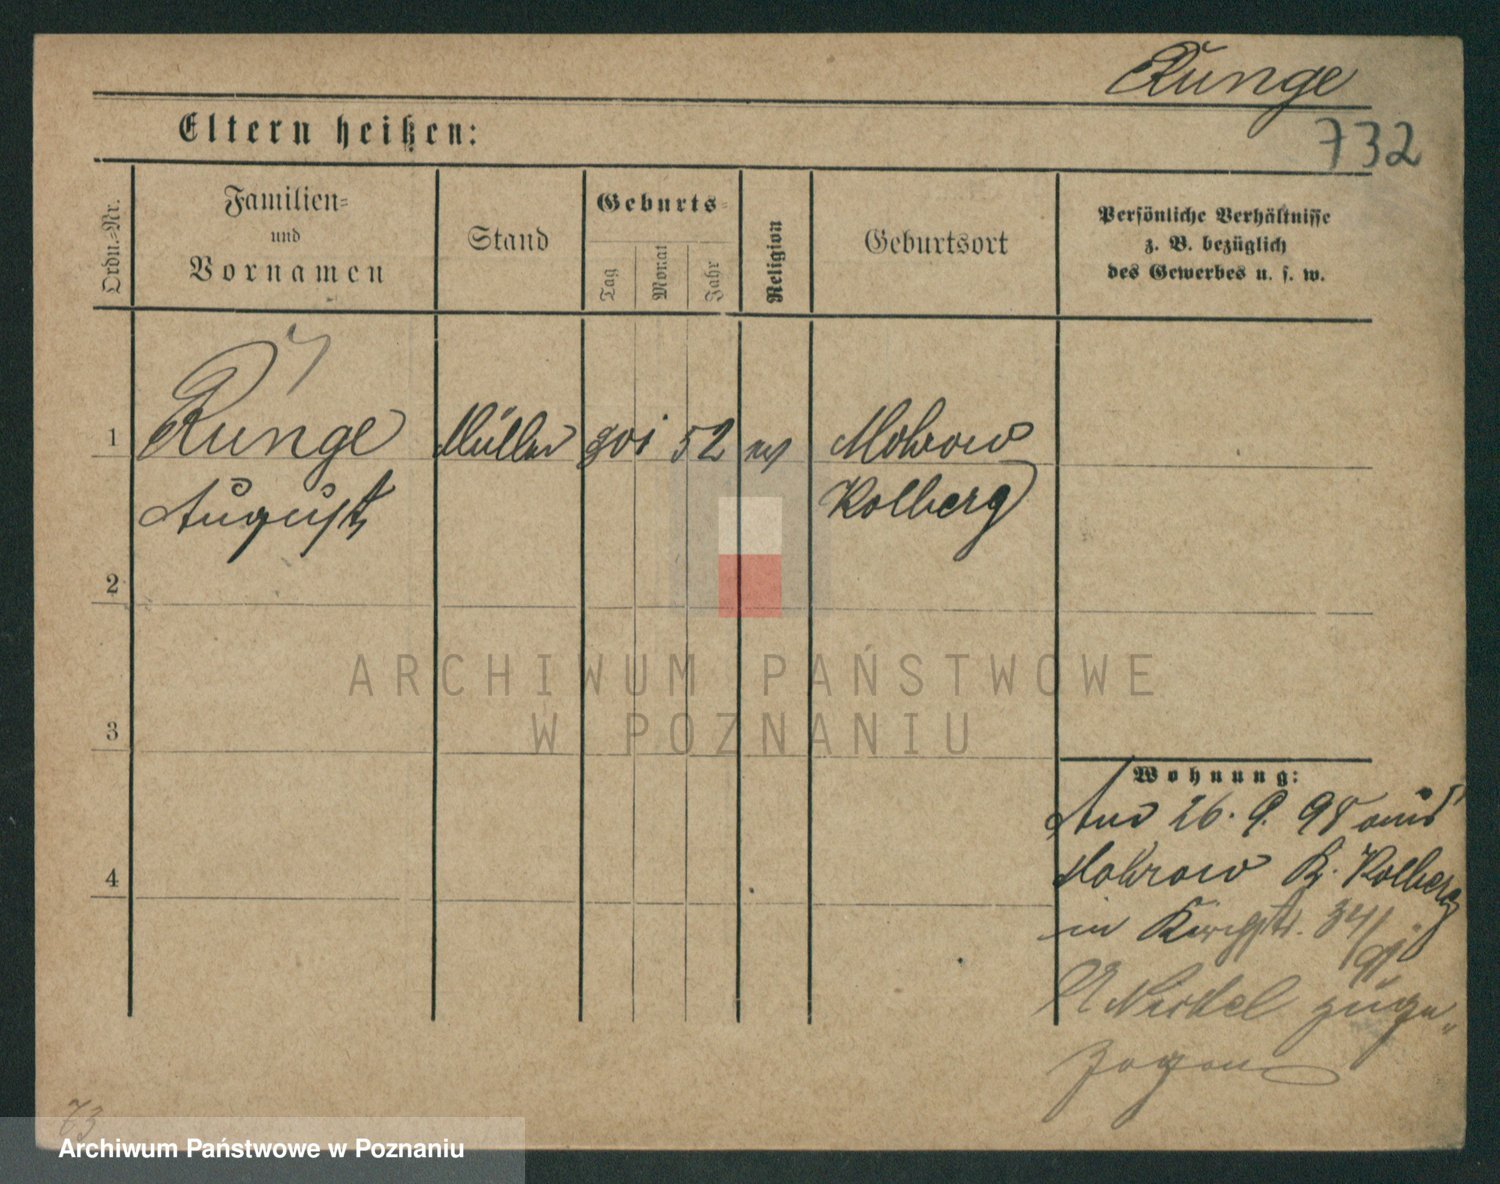 Runge
732
Eltern heißen:
Ordn.-Nr.
Familien-
und
Vornamen
Stand
Geburts-
Tag
Monat
Jahr
Religion
Geburtsort
Persönliche Verhältnisse
z. B. bezüglich
des Gewerbes u. s. w.
1 Runge Müller 52 Mohrow
August Kolberg
2
3
4
Wohnung:
26. 9. 98 aus
Mohrow K. Kolberg
in 34/
zuge-
zogen
73
ARCHIWUM PAŃSTWOWE
W POZNANIU
Archiwum Państwowe w Poznaniu